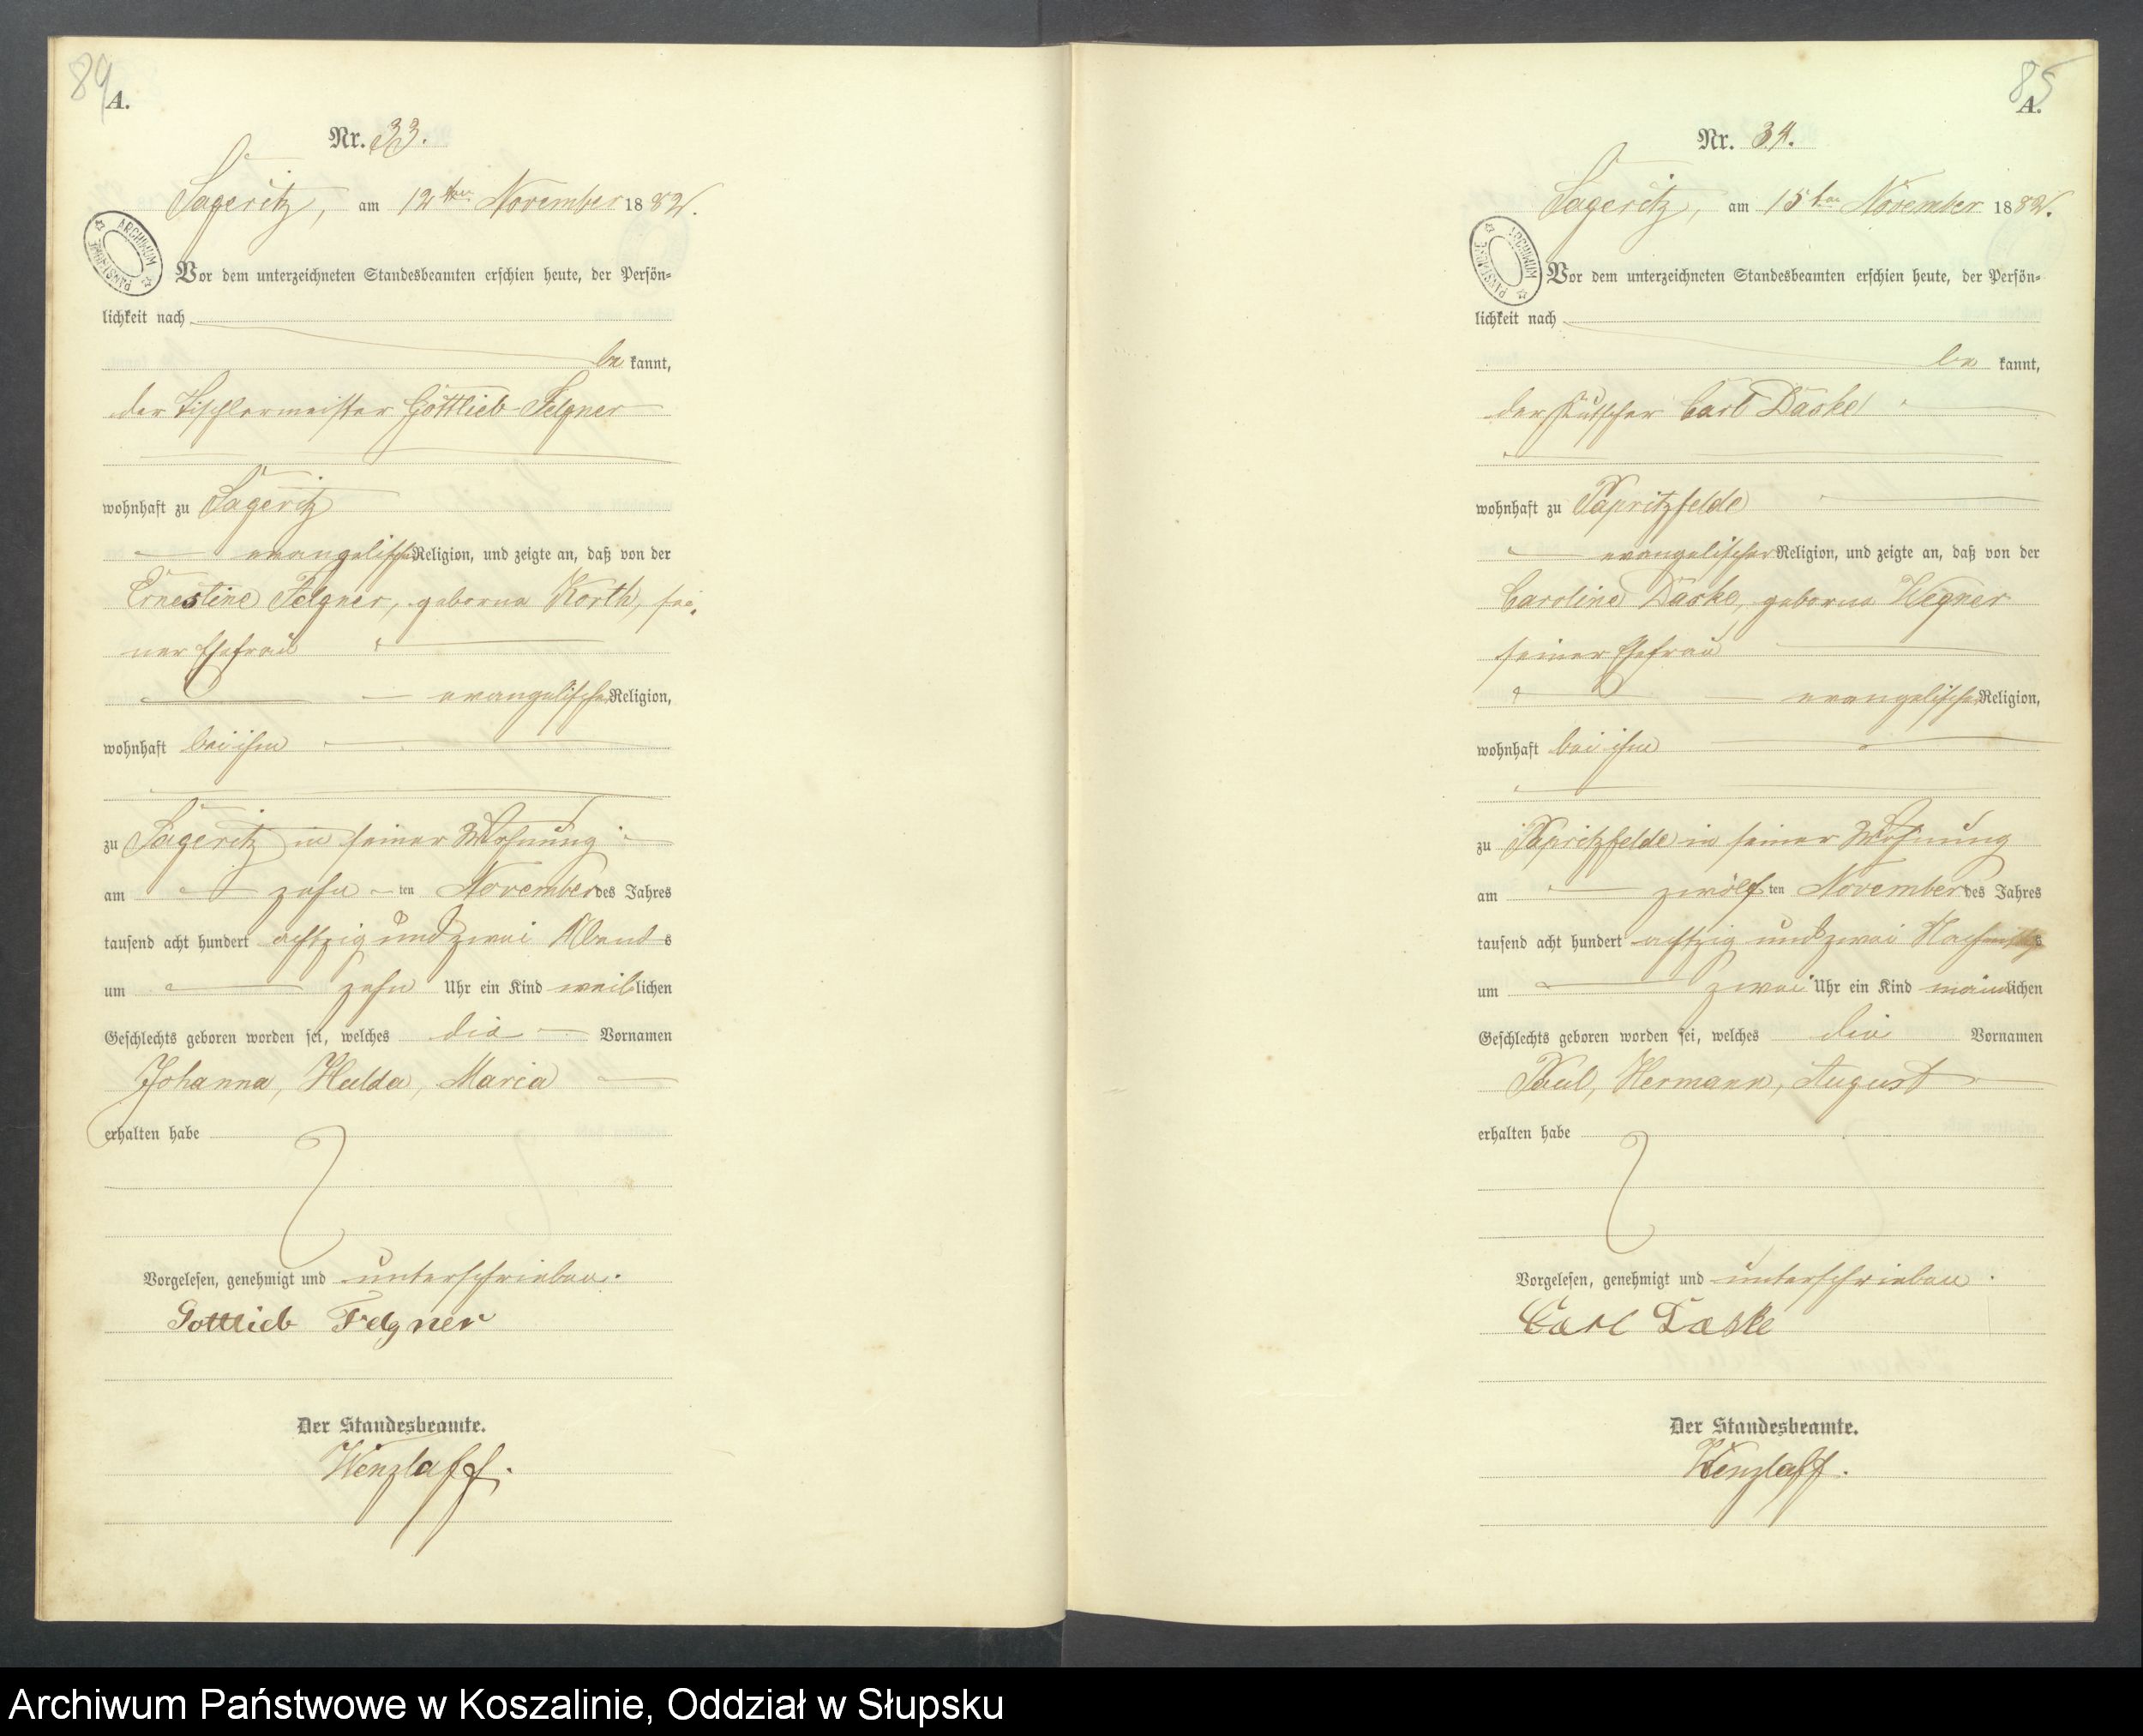 84
A.
Nr. 33.
Sageritz, am 12ten November 1882.
ARCHIWUM PAŃSTWOWE
Vor dem unterzeichneten Standesbeamten erschien heute, der Persön-
lichkeit nach
be kannt,
der Tischlermeister Gottlieb Felgner
wohnhaft zu Sageritz
evangelischer Religion, und zeigte an, daß von der
Ernestine Felgner, geborne Korth, sei-
ner Ehefrau
evangelischer Religion,
wohnhaft bei ihm
zu Sageritz in seiner Wohnung
am zehn ten November des Jahres
tausend acht hundert achtzig und zwei Abends
um zehn Uhr ein Kind weiblichen
Geschlechts geboren worden sei, welches die Vornamen
Johanna, Hulda, Maria
erhalten habe
Vorgelesen, genehmigt und unterschrieben.
Gottlieb Felgner
Der Standesbeamte.
Wenzlaff.
85
A.
Nr. 34.
Sageritz, am 15ten November 1882.
ARCHIWUM PAŃSTWOWE
Vor dem unterzeichneten Standesbeamten erschien heute, der Persön-
lichkeit nach
be kannt,
der Kutscher Carl Daske
wohnhaft zu Papritzfelde
evangelischer Religion, und zeigte an, daß von der
Caroline Daske, geborne Wegner
seiner Ehefrau
evangelischer Religion,
wohnhaft bei ihm
zu Papritzfelde in seiner Wohnung
am zwölf ten November des Jahres
tausend acht hundert achtzig und zwei Nachmittags
um zwei Uhr ein Kind männlichen
Geschlechts geboren worden sei, welches die Vornamen
Paul, Hermann, August
erhalten habe
Vorgelesen, genehmigt und unterschrieben.
Carl Daske
Der Standesbeamte.
Wenzlaff.
Archiwum Państwowe w Koszalinie, Oddział w Słupsku